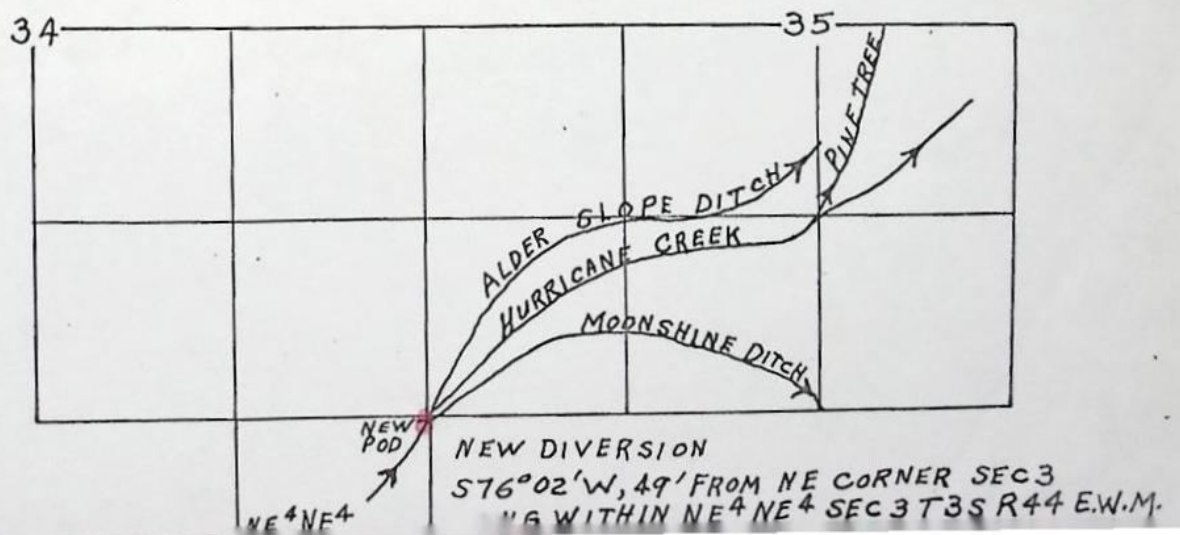 34
35
PINE TREE
ALDER SLOPE DITCH
HURRICANE CREEK
MOONSHINE DITCH
NEW
POD
NEW DIVERSION
S76°02'W, 49' FROM NE CORNER SEC 3
WITHIN NE⁴NE⁴ SEC 3 T3S R44 E.W.M.
NE⁴NE⁴